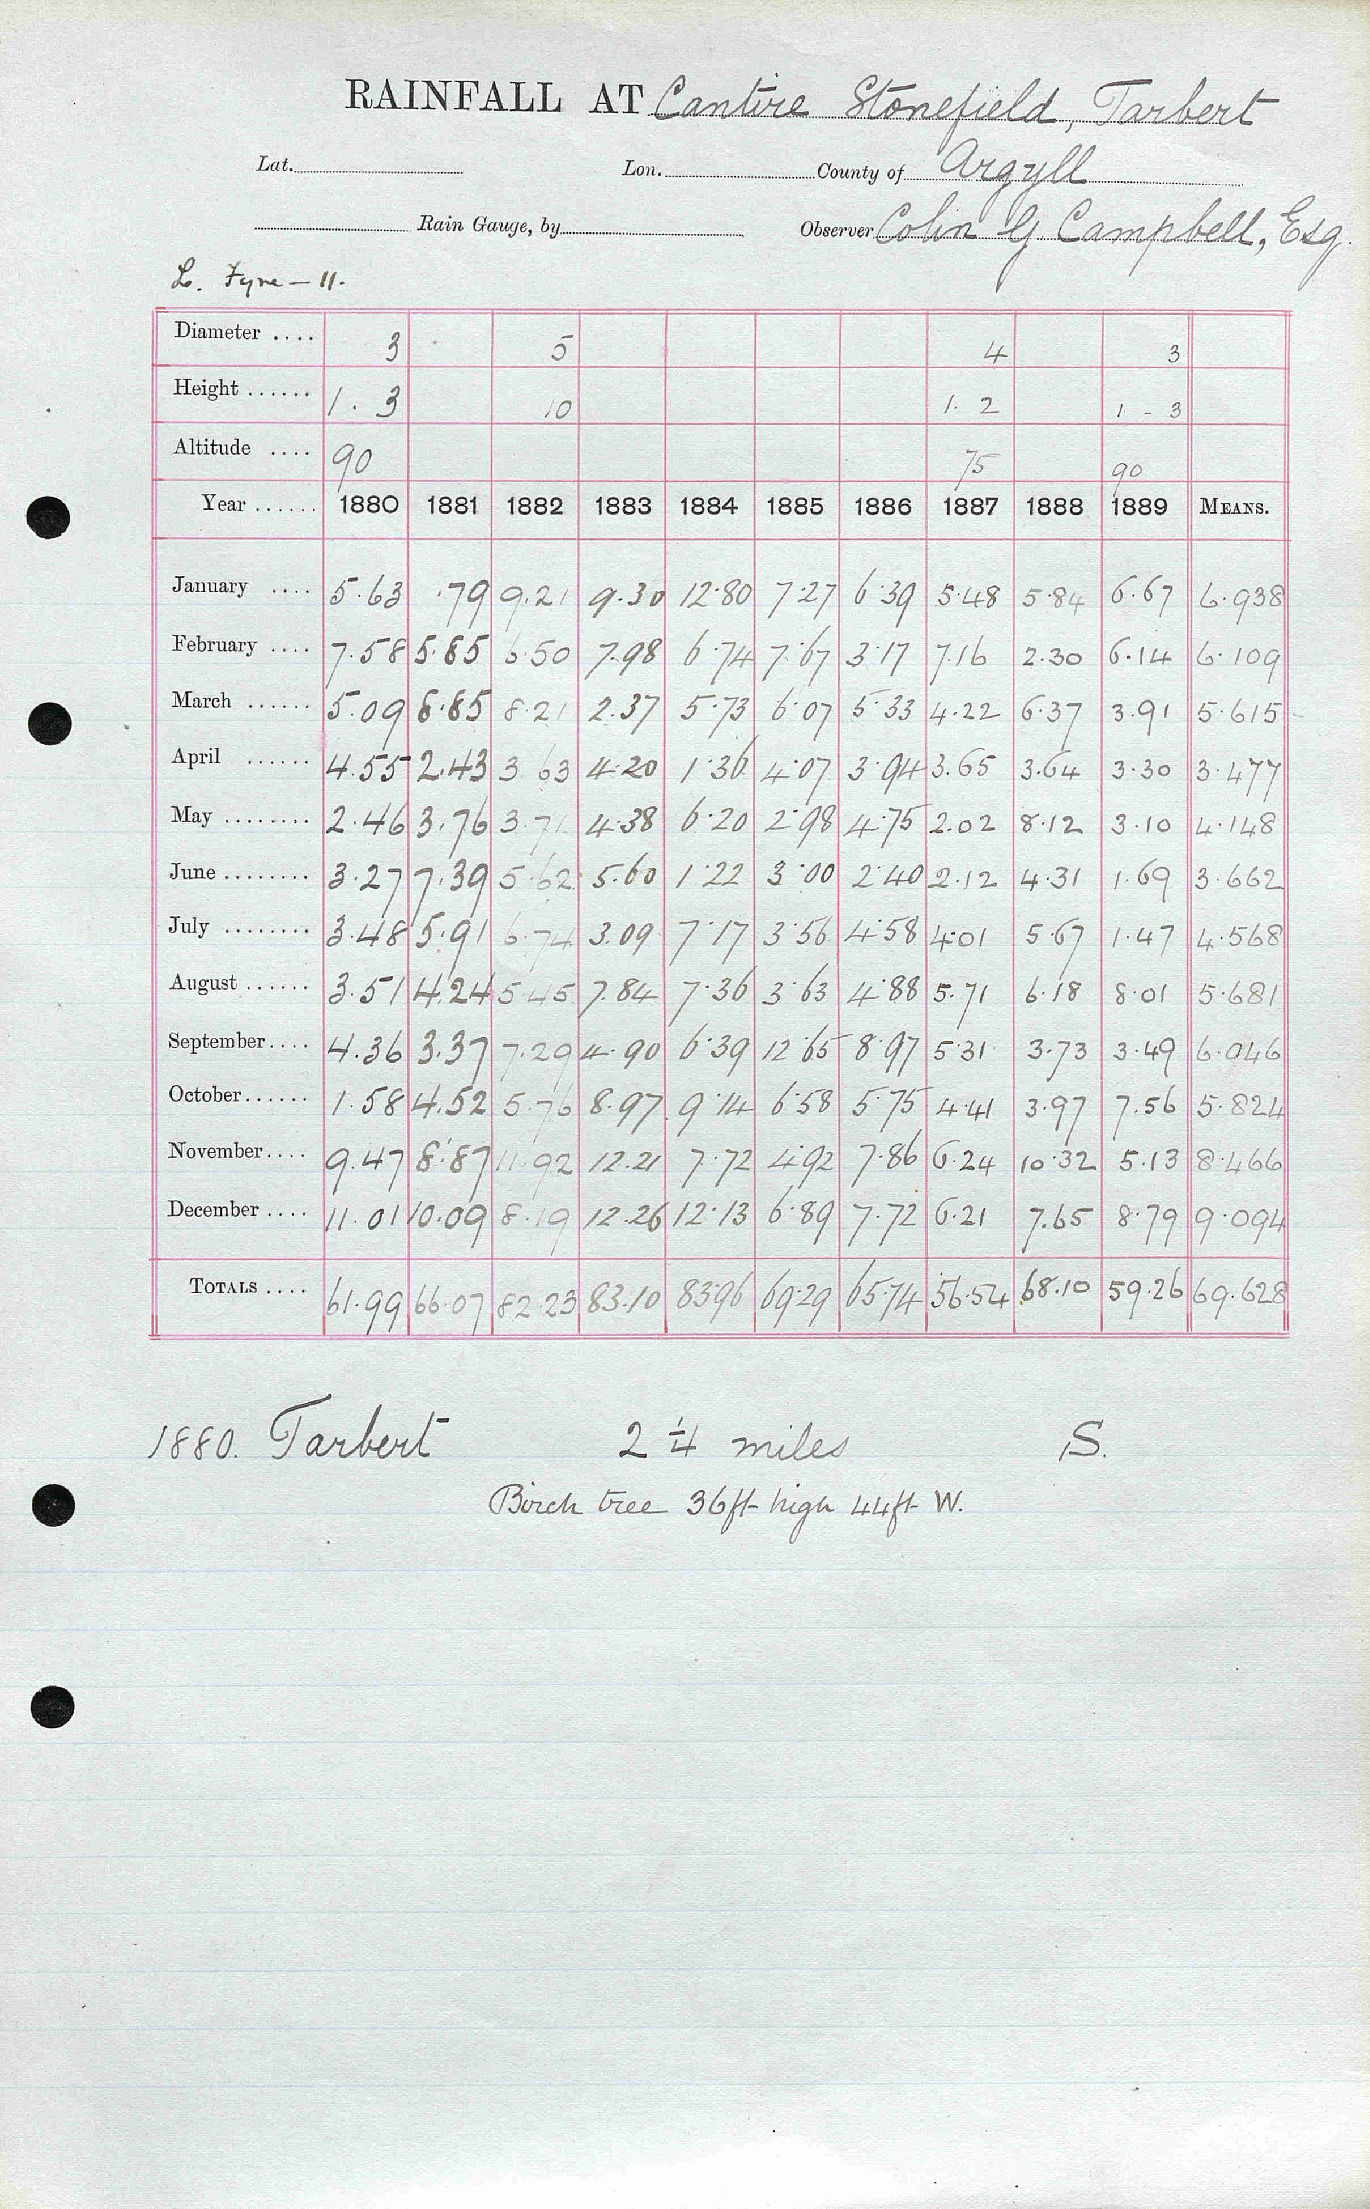 RAINFALL AT Cantire Stonefield, Tarbert
Lat. Lon. County of Argyll
Rain Gauge, by Observer Colin G. Campbell, Esq.
L. Fyne - 11.
Diameter .... 3 5 4 3
Height ...... 1. 3 10 1. 2 1 - 3
Altitude .... 90 75 90
Year ...... 1880 1881 1882 1883 1884 1885 1886 1887 1888 1889 MEANS.
January .... 5.63 .79 9.21 9.30 12.80 7.27 6.39 5.48 5.84 6.67 6.938
February .... 7.58 5.85 6.50 7.98 6.74 7.67 3.17 7.16 2.30 6.14 6.109
March ...... 5.09 8.85 8.21 2.37 5.73 6.07 5.33 4.22 6.37 3.91 5.615
April ...... 4.55 2.43 3.63 4.20 1.36 4.07 3.94 3.65 3.64 3.30 3.477
May ........ 2.46 3.76 3.71 4.38 6.20 2.98 4.75 2.02 8.12 3.10 4.148
June ........ 3.27 7.39 5.62 5.60 1.22 3.00 2.40 2.12 4.31 1.69 3.662
July ........ 3.48 5.91 6.74 3.09 7.17 3.56 4.58 4.01 5.67 1.47 4.568
August ...... 3.51 4.24 5.45 7.84 7.36 3.63 4.88 5.71 6.18 8.01 5.681
September.... 4.36 3.37 7.29 4.90 6.39 12.65 8.97 5.31 3.73 3.49 6.046
October...... 1.58 4.52 5.76 8.97 9.14 6.58 5.75 4.41 3.97 7.56 5.824
November.... 9.47 8.87 11.92 12.21 7.72 4.92 7.86 6.24 10.32 5.13 8.466
December .... 11.01 10.09 8.19 12.26 12.13 6.89 7.72 6.21 7.65 8.79 9.094
TOTALS .... 61.99 66.07 82.23 83.10 83.96 69.29 65.74 56.54 68.10 59.26 69.628
1880. Tarbert 2 1/4 miles S.
Birch tree 36ft high 44ft W.